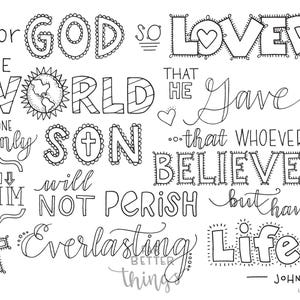 for GOD so LOVED
THE WORLD THAT HE Gave
ONE only SON that WHOEVER
BELIEVE
IN HIM will NOT PERISH but have
Everlasting Life
JOHN
BETTER things